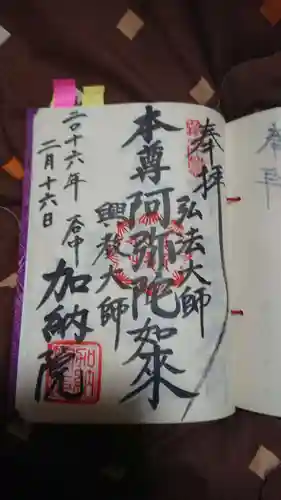 奉拝
弘法大師
本尊阿弥陀如来
興教大師
加納院
二〇十六年
二月十六日
奉拝